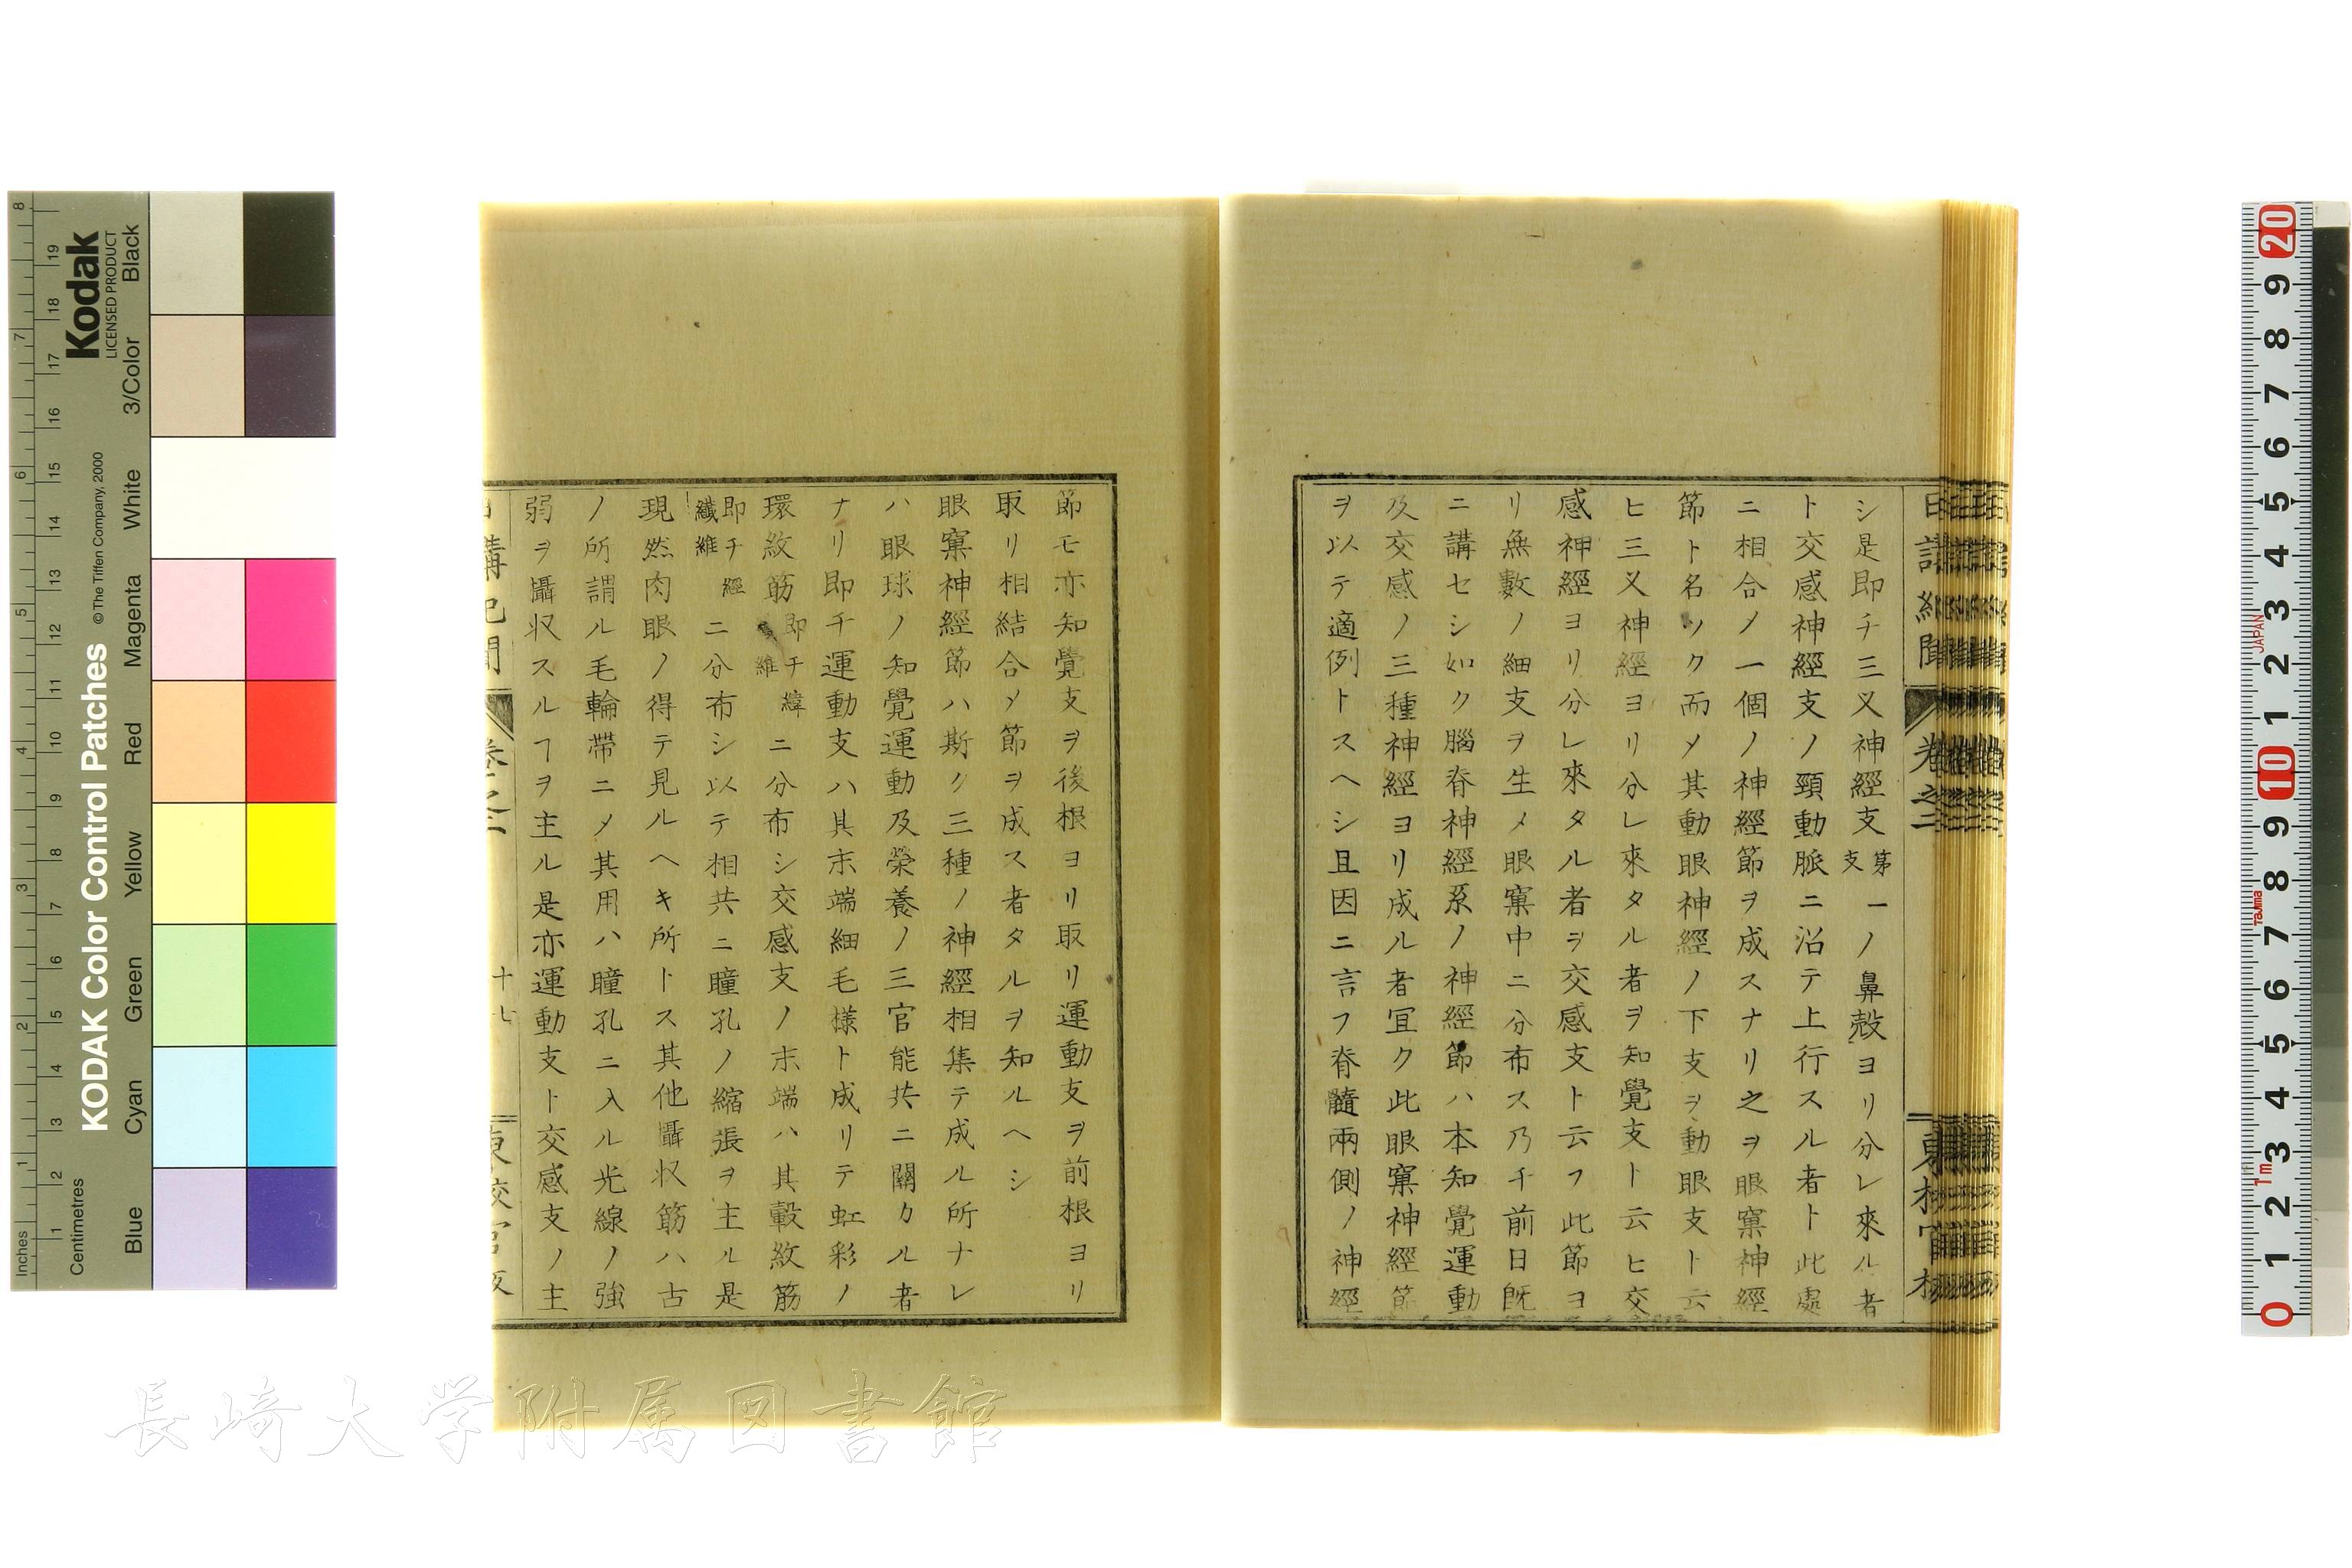 シ是即チ三叉神經支第一ノ鼻殻支ヨリ分レ來ル者
ト交感神經支ノ頸動脈ニ沿テ上行スル者ト此處
ニ相合ノ一個ノ神經節ヲ成スナリ之ヲ眼窠神經
節ト名ツク而〆其動眼神經ノ下支ヲ動眼支ト云
ヒ三叉神經ヨリ分レ來タル者ヲ知覺支ト云ヒ交
感神經ヨリ分レ來タル者ヲ交感支ト云フ此節ヨ
リ無數ノ細支ヲ生〆眼窠中ニ分布ス乃チ前日既
ニ講セシ如ク腦脊神經系ノ神經節ハ本知覺運動
及交感ノ三種神經ヨリ成ル者冝ク此眼窠神經節
ヲ以テ適例トスヘシ且因ニ言フ脊髓兩側ノ神經
節モ亦知覺支ヲ後根ヨリ取リ運動支ヲ前根ヨリ
取リ相結合〆節ヲ成ス者タルヲ知ルヘシ
眼窠神經節ハ斯ク三種ノ神經相集テ成ル所ナレ
ハ眼球ノ知覺運動及榮養ノ三官能共ニ關カル者
ナリ即チ運動支ハ其末端細毛樣ト成リテ虹彩ノ
環紋筋即チ緯維ニ分布シ交感支ノ末端ハ其轂紋筋
即チ經纖維ニ分布シ以テ相共ニ瞳孔ノ縮張ヲ主ル是
現然肉眼ノ得テ見ルヘキ所トス其他懾収筋ハ古
ノ所謂ル毛輪帶ニ〆其用ハ瞳孔ニ入ル光線ノ強
弱ヲ懾収スルヿヲ主ル是亦運動支ト交感支ノ主
日講紀聞
卷之二
十七
東校官板
KODAK Color Control Patches
© The Tiffen Company, 2000
Kodak
LICENSED PRODUCT
Inches
Centimetres
Blue
Cyan
Green
Yellow
Red
Magenta
White
3/Color
Black
長崎大学附属図書館
JAPAN
Tajima
1m